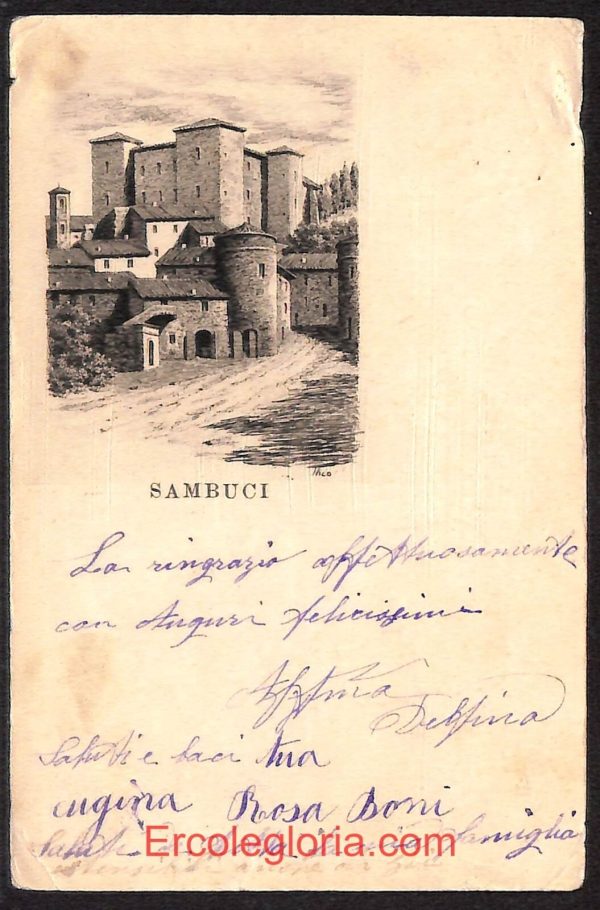 Thco
SAMBUCI
La ringrazio affettuosamente
con Auguri felicissimi
Affma
Delfina
Saluti e baci tua
cugina Rosa Boni
Saluti famiglia
Ercolegloria.com